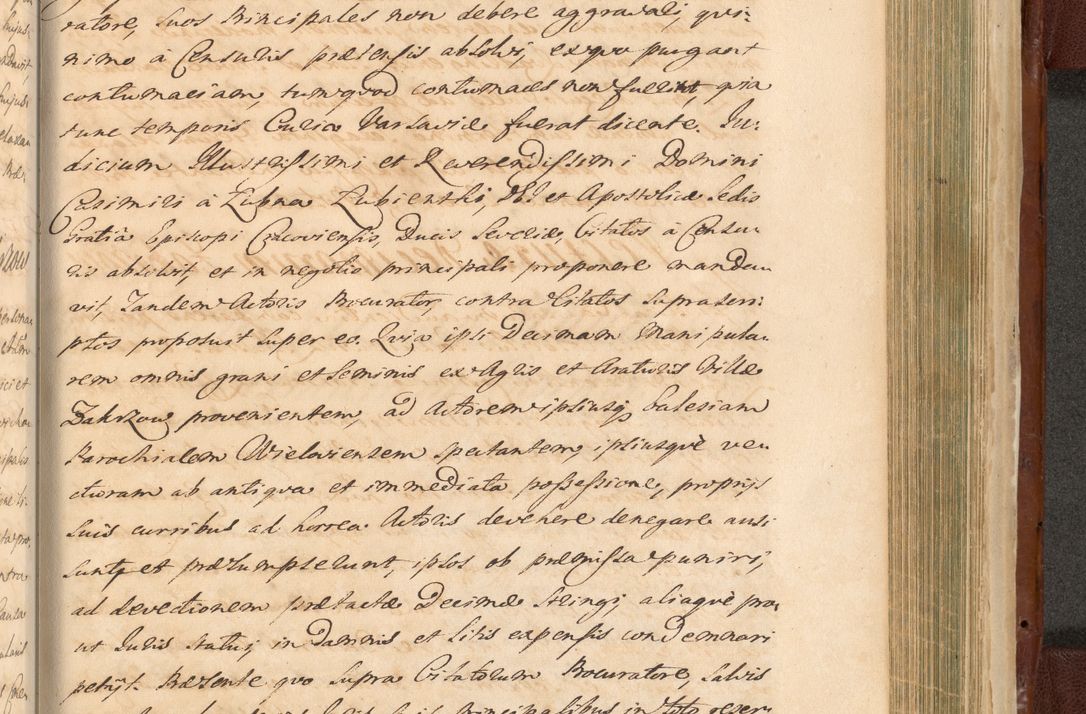 ratore, suos Principales non debere aggravali, qui:
nimo à Censuris prætensis absolvi, ex quo purgant
contumaciam, tum quod contumaces non fuerint, quia
tunc temporis Curia Varsaviæ fuerat dicente. Ju:
dicium Illustrissimi et Reverendissimi Domini
Casimiri à Łubna Łubienski, Dei et Apostolicæ Sedis
Gratiâ Episcopi Cracoviensis, Ducis Severiæ, Citatos à Censu
ris absolvit, et in negotio principali proponere manda:
vit, Tandem Actoris Procurator, contra Citatos suprascri:
ptos proposuit super eo. Quia ipsi Decimam Manipula:
rem omnis grani et seminis ex Agris et Araturis Villæ
Zakrzow provenientem, ad Actorem ipsiusq, Ecclesiam
Parochialem Wieloviensem spectantem, ipsiusquè ve:
cturam ab antiqua et immediata possessione, proprijs
suis curribus ad horrea Actoris devehere denegare ausi
sunt et præsumpserunt, ipsos ob præmissa puniri,
ad devectionem prætactæ Decimæ stringi aliaquè pro:
ut Juris statui, in Damnis et Litis expensis condemnari
petijt. Præsente quo supra Citatorum Procuratore, salvis
Principalibus in toto reser: